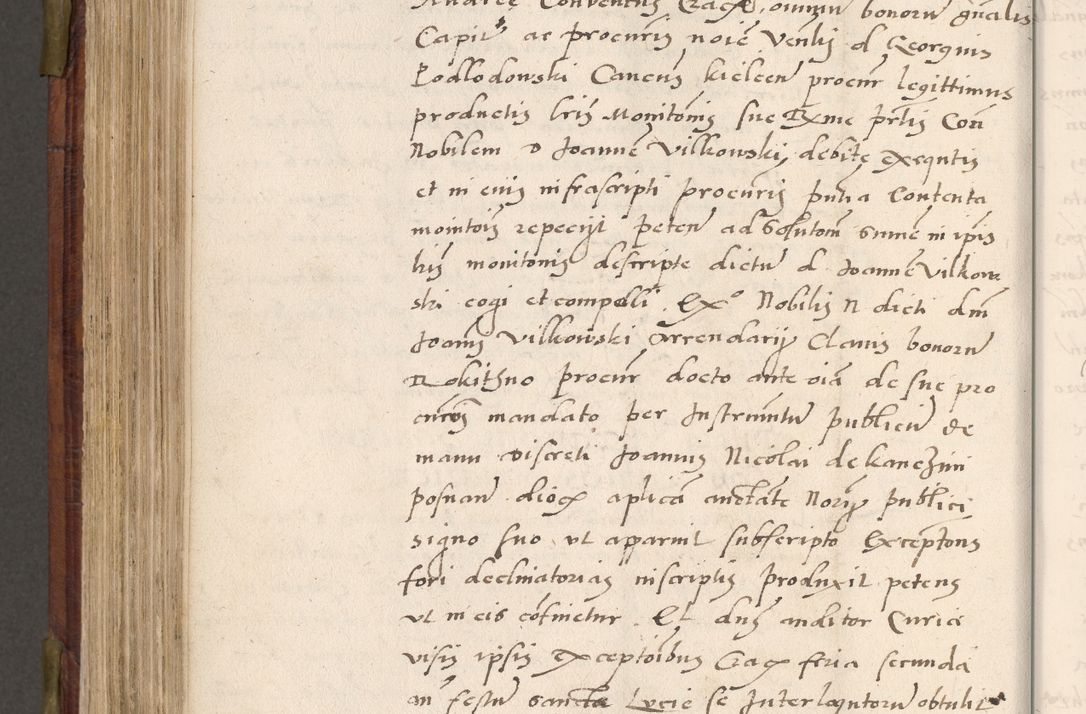 Andree Conventus Crac, omnium bonorum gnalis
Capitr ac procuris noie Venlis d Georgius
Podlodowski Cancus kielcen procur legittimus
productis lris Monitoriis sue Rxme prtis Con
Nobilem D Joanne Vilkowski, debite exeqntis
et in eius infrascripti procuris pntia Contenta
monitoris repeciit peten ad Solutom summe in ipsis
lris monitoriis descripte dictu d Joanne Vilkow
ski cogi et compelli. Ex° Nobilis N dicti dni
Joanis Vilkowski Arrendarii Clavis bonoru
Rokithno procur docto ante oia de sue pro
curois mandato per Instrumntu publicu de
manu discreti Joannis Nicolai de kanczini
posnan dioc aplica auctate Norii publici
signo suo ut aparuit subscripto Exceptons
fori declinatorias inscriptis produxit petens
ut in eis cofinetur. Et dns auditor Curie
visis ipsis exceptoibus Crac feria secunda
an festu sancte Lucie se Interloqutoru obtulit